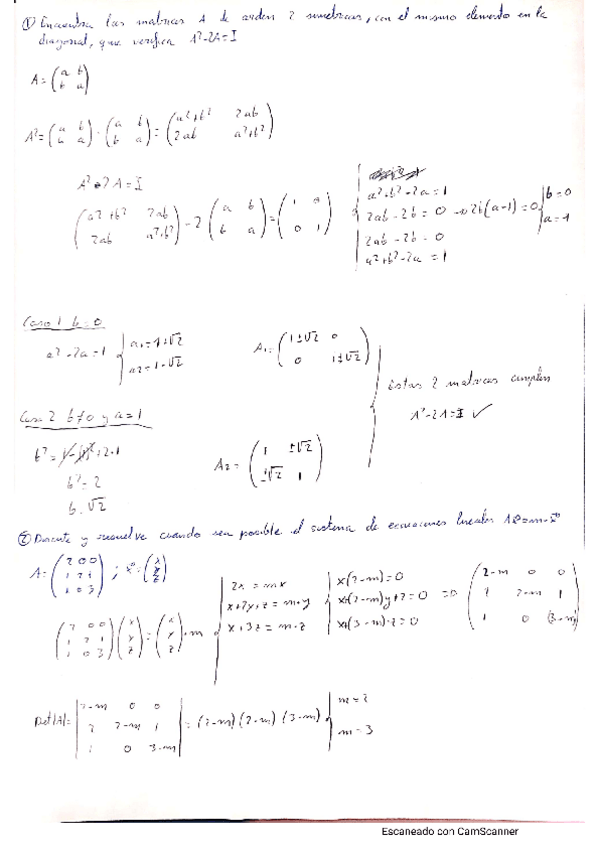 ① Encuentra las matrices A de orden 2 simétricas, con el mismo elemento en la
diagonal, que verifica A²-2A=I
A=(a b
b a)
A²=(a b
a a)·(a b
b a)=(a²+b² 2ab
2ab a²+b²)
A²-2A=I
(a²+b² 2ab
2ab a²+b²)-2(a b
b a)=(1 0
0 1)
a²+b²-2a=1
2ab-2b=0 → 2b(a-1)=0 b=0 a=1
2ab-2b=0
a²+b²-2a=1
Caso 1 b=0
a²-2a=1 a1=1+√2
a2=1-√2
A1=(1±√2 0
0 1±√2)
Estas 2 matrices cumplen
A²-2A=I ✓
Caso 2 b≠0 y a=1
b²=2
b=√2
A2=(1 ±√2
±√2 1)
② Discute y resuelve cuando sea posible el sistema de ecuaciones lineales
A=(2 0 0
1 2 1
1 0 3); x=(x
y
z)
(2 0 0
1 2 1
1 0 3)(x
y
z)=(x
y
z)·m
2x=mx
x+2y+z=m·y
x+3z=m·z
x(2-m)=0
x+(2-m)y+z=0
x+(3-m)·z=0
(2-m 0 0
1 2-m 1
1 0 (3-m))
Det|A|=|2-m 0 0
1 2-m 1
1 0 3-m|=(2-m)(2-m)(3-m) m=2
m=3
Escaneado con CamScanner